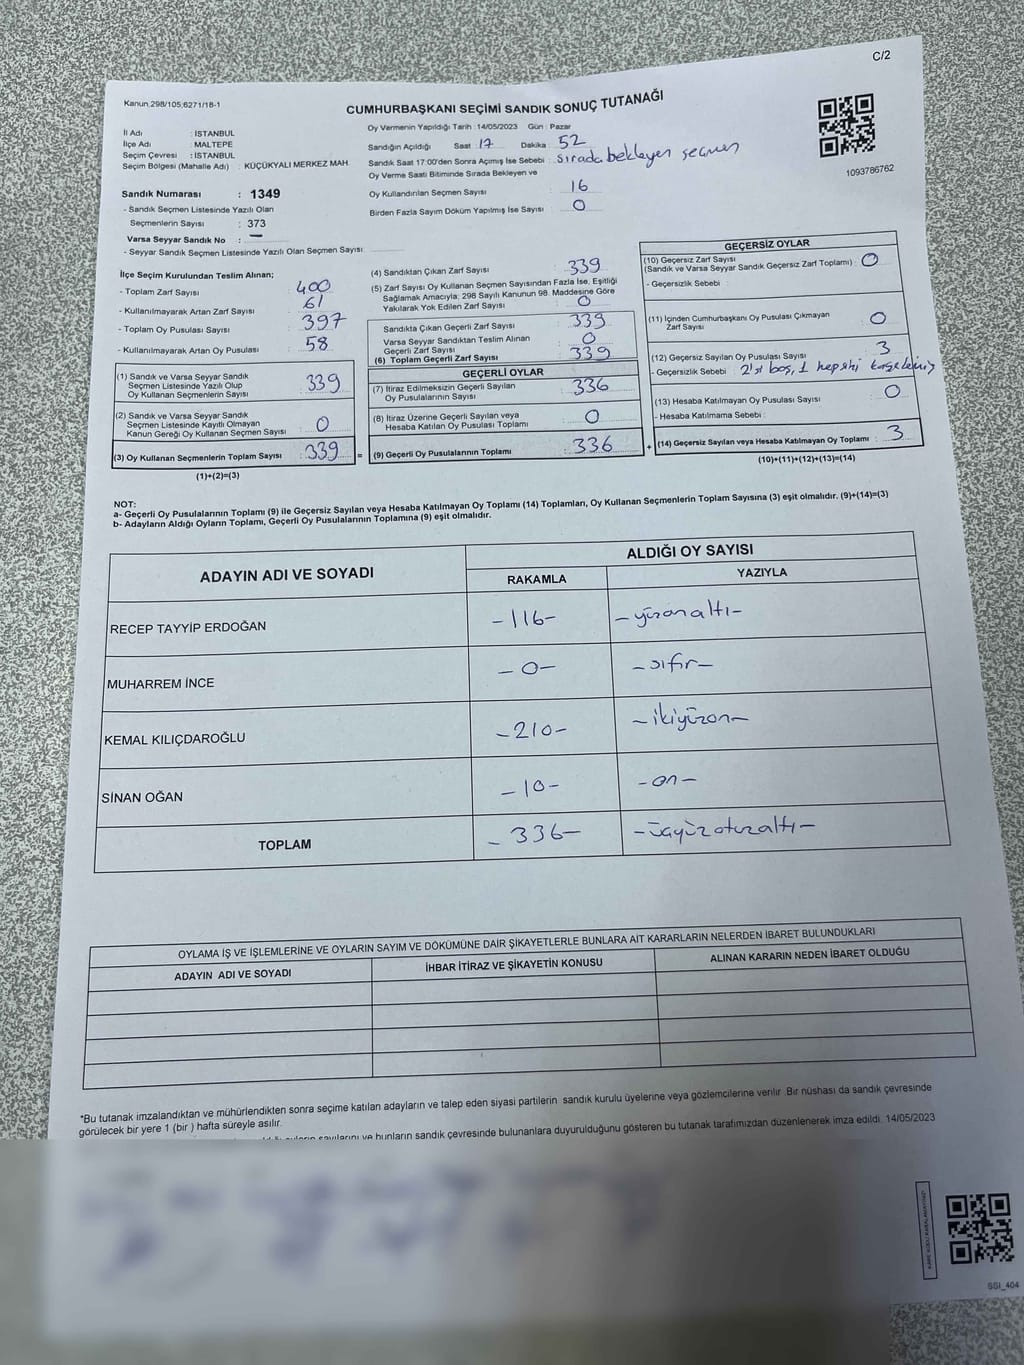 C/2
Kanun,298/105;6271/18-1
CUMHURBAŞKANI SEÇİMİ SANDIK SONUÇ TUTANAĞI
İl Adı : İSTANBUL
İlçe Adı : MALTEPE
Seçim Çevresi : İSTANBUL
Seçim Bölgesi (Mahalle Adı) : KÜÇÜKYALI MERKEZ MAH.
Sandık Numarası : 1349
- Sandık Seçmen Listesinde Yazılı Olan
Seçmenlerin Sayısı : 373
Varsa Seyyar Sandık No : —
- Seyyar Sandık Seçmen Listesinde Yazılı Olan Seçmen Sayısı:
Oy Vermenin Yapıldığı Tarih : 14/05/2023 Gün : Pazar
Sandığın Açıldığı Saat 17 Dakika 52
Sandık Saat 17:00'den Sonra Açımış İse Sebebi : Sırada bekleyen seçmen
Oy Verme Saati Bitiminde Sırada Bekleyen ve
Oy Kullandırılan Seçmen Sayısı 16
Birden Fazla Sayım Döküm Yapılmış İse Sayısı : 0
1093786762
İlçe Seçim Kurulundan Teslim Alınan;
- Toplam Zarf Sayısı : 400
- Kullanılmayarak Artan Zarf Sayısı : 61
- Toplam Oy Pusulası Sayısı : 397
- Kullanılmayarak Artan Oy Pusulası : 58
(1) Sandık ve Varsa Seyyar Sandık
Seçmen Listesinde Yazılı Olup
Oy Kullanan Seçmenlerin Sayısı : 339
(2) Sandık ve Varsa Seyyar Sandık
Seçmen Listesinde Kayıtlı Olmayan
Kanun Gereği Oy Kullanan Seçmen Sayısı : 0
(3) Oy Kullanan Seçmenlerin Toplam Sayısı : 339
(1)+(2)=(3)
(4) Sandıktan Çıkan Zarf Sayısı : 339
(5) Zarf Sayısı Oy Kullanan Seçmen Sayısından Fazla İse, Eşitliği
Sağlamak Amacıyla; 298 Sayılı Kanunun 98. Maddesine Göre
Yakılarak Yok Edilen Zarf Sayısı : 0
Sandıkta Çıkan Geçerli Zarf Sayısı : 339
Varsa Seyyar Sandıktan Teslim Alınan
Geçerli Zarf Sayısı : 0
(6) Toplam Geçerli Zarf Sayısı : 339
GEÇERLİ OYLAR
(7) İtiraz Edilmeksizin Geçerli Sayılan
Oy Pusulalarının Sayısı : 336
(8) İtiraz Üzerine Geçerli Sayılan veya
Hesaba Katılan Oy Pusulası Toplamı : 0
= (9) Geçerli Oy Pusulalarının Toplamı : 336
GEÇERSİZ OYLAR
(10) Geçersiz Zarf Sayısı
(Sandık ve Varsa Seyyar Sandık Geçersiz Zarf Toplamı) : 0
- Geçersizlik Sebebi :
(11) İçinden Cumhurbaşkanı Oy Pusulası Çıkmayan
Zarf Sayısı : 0
(12) Geçersiz Sayılan Oy Pusulası Sayısı : 3
- Geçersizlik Sebebi : 2'si boş, 1 hepsini
(13) Hesaba Katılmayan Oy Pusulası Sayısı : 0
- Hesaba Katılmama Sebebi :
+ (14) Geçersiz Sayılan veya Hesaba Katılmayan Oy Toplamı : 3
(10)+(11)+(12)+(13)=(14)
NOT:
a- Geçerli Oy Pusulalarının Toplamı (9) ile Geçersiz Sayılan veya Hesaba Katılmayan Oy Toplamı (14) Toplamları, Oy Kullanan Seçmenlerin Toplam Sayısına (3) eşit olmalıdır. (9)+(14)=(3)
b- Adayların Aldığı Oyların Toplamı, Geçerli Oy Pusulalarının Toplamına (9) eşit olmalıdır.
ADAYIN ADI VE SOYADI
ALDIĞI OY SAYISI
RAKAMLA YAZIYLA
RECEP TAYYİP ERDOĞAN -116- -yüzonaltı-
MUHARREM İNCE -0- -sıfır-
KEMAL KILIÇDAROĞLU -210- -ikiyüzon-
SİNAN OĞAN -10- -on-
TOPLAM -336- -üçyüzotuzaltı-
OYLAMA İŞ VE İŞLEMLERİNE VE OYLARIN SAYIM VE DÖKÜMÜNE DAİR ŞİKAYETLERLE BUNLARA AİT KARARLARIN NELERDEN İBARET BULUNDUKLARI
ADAYIN ADI VE SOYADI İHBAR İTİRAZ VE ŞİKAYETİN KONUSU ALINAN KARARIN NEDEN İBARET OLDUĞU
*Bu tutanak imzalandıktan ve mühürlendikten sonra seçime katılan adayların ve talep eden siyasi partilerin sandık kurulu üyelerine veya gözlemcilerine verilir. Bir nüshası da sandık çevresinde
görülecek bir yere 1 (bir ) hafta süreyle asılır.
sayılarını ve bunların sandık çevresinde bulunanlara duyurulduğunu gösteren bu tutanak tarafımızdan düzenlenerek imza edildi. 14/05/2023
SSI_404